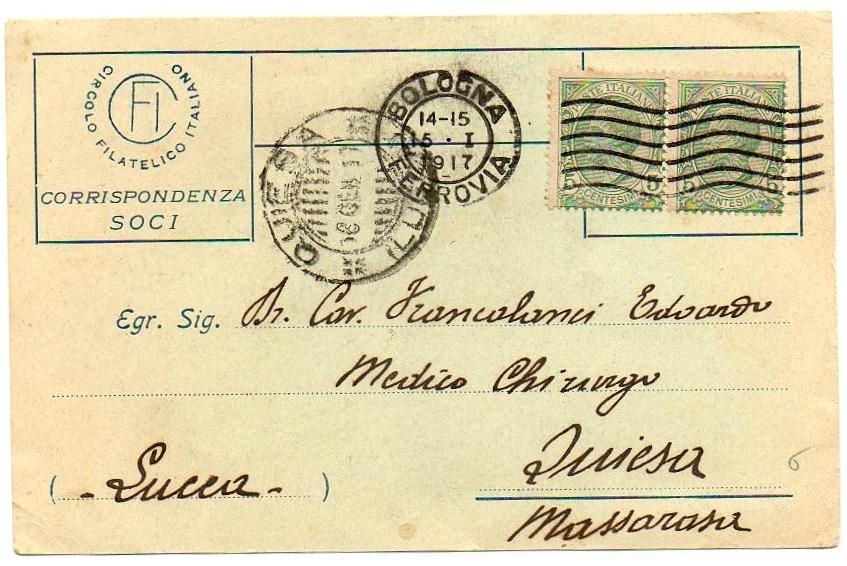 CIRCOLO FILATELICO ITALIANO
CFI
CORRISPONDENZA
SOCI
BOLOGNA
14-15
15 · I
1917
FERROVIA
QUIESA
16 GEN 17
(LUCCA)
POSTE ITALIANE
5 CENTESIMI 5
POSTE ITALIANE
5 CENTESIMI 5
Egr. Sig. Dr. Cav. Francolanci Edoardo
Medico Chirurgo
Quiesa
( - Lucca - )
Massarosa
6